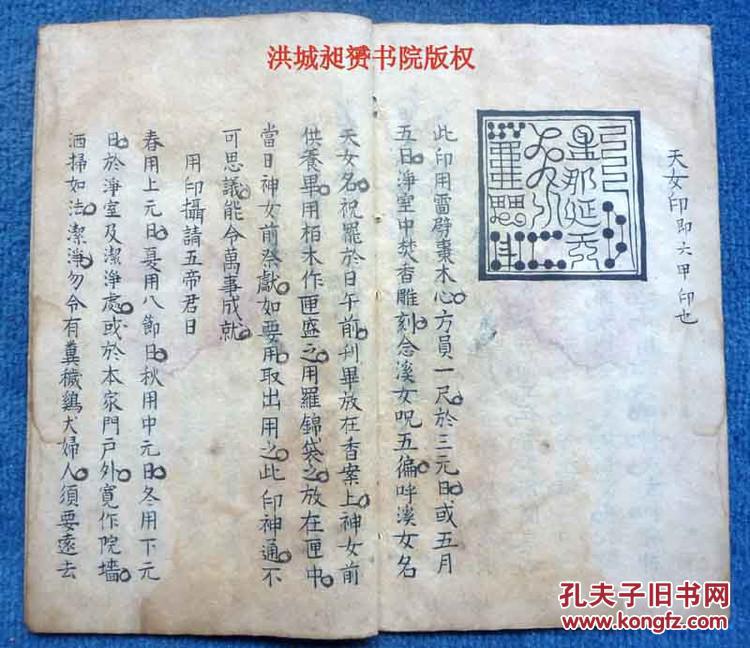 洪城昶赟书院版权
天女印即六甲印也
此印用雷劈棗木心方員一尺於三元日或五月
五日淨室中焚香雕刻念溪女呪五徧呼溪女名
天女名祝罷於日午前刋畢放在香案上神女前
供養畢用栢木作匣盛之用羅錦袋之放在匣中
當日神女前祭獻如要用取出用之此印神通不
可思議能令萬事成就
用印攝請五帝君日
春用上元日夏用八節日秋用中元日冬用下元
日於淨室及潔淨處或於本家門戶外寬作院墻
洒掃如法潔淨勿令有糞穢鷄犬婦人須要遠去
孔夫子旧书网
www.kongfz.com